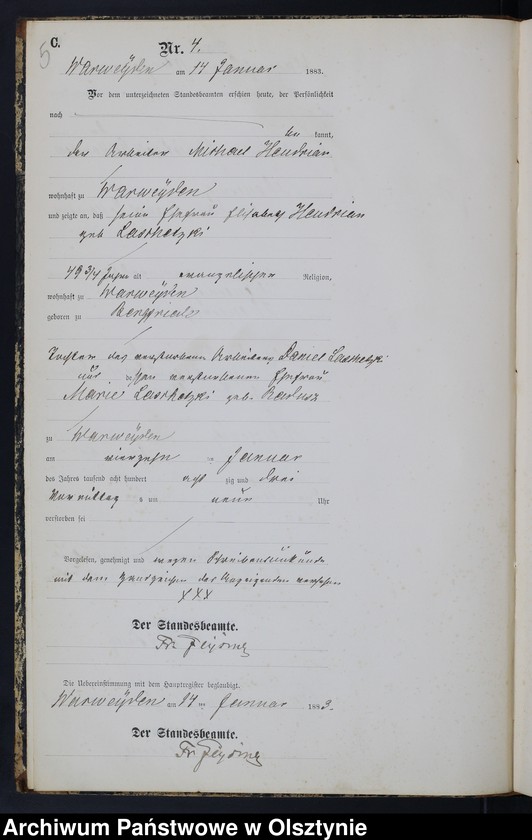 5 C.
Nr. 4.
Warweyden am 14 Januar 1883.
Vor dem unterzeichneten Standesbeamten erschien heute, der Persönlichkeit
nach
be kannt,
der Arbeiter Michael Hendrian
wohnhaft zu Warweyden
und zeigte an, daß seine Ehefrau Elisabeth Hendrian
geb Laschetzki
49 3/4 Jahre alt evangelischer Religion,
wohnhaft zu Warweyden
geboren zu Bergfriede
Tochter des verstorbenen Arbeiters Daniel Laschetzki
und dessen verstorbenen Ehefrau
Marie Laschetzki geb.
zu Warweyden
am vierzehn ten Januar
des Jahres tausend acht hundert acht zig und drei
Vormittag s um neun Uhr
verstorben sei
Vorgelesen, genehmigt und wegen Schreibensunkunde
mit dem Handzeichen des Anzeigenden versehen
XXX
Der Standesbeamte.
Fr.
Die Uebereinstimmung mit dem Hauptregister beglaubigt.
Warweyden am 14 ten Januar 1883.
Der Standesbeamte.
Fr.
Archiwum Państwowe w Olsztynie